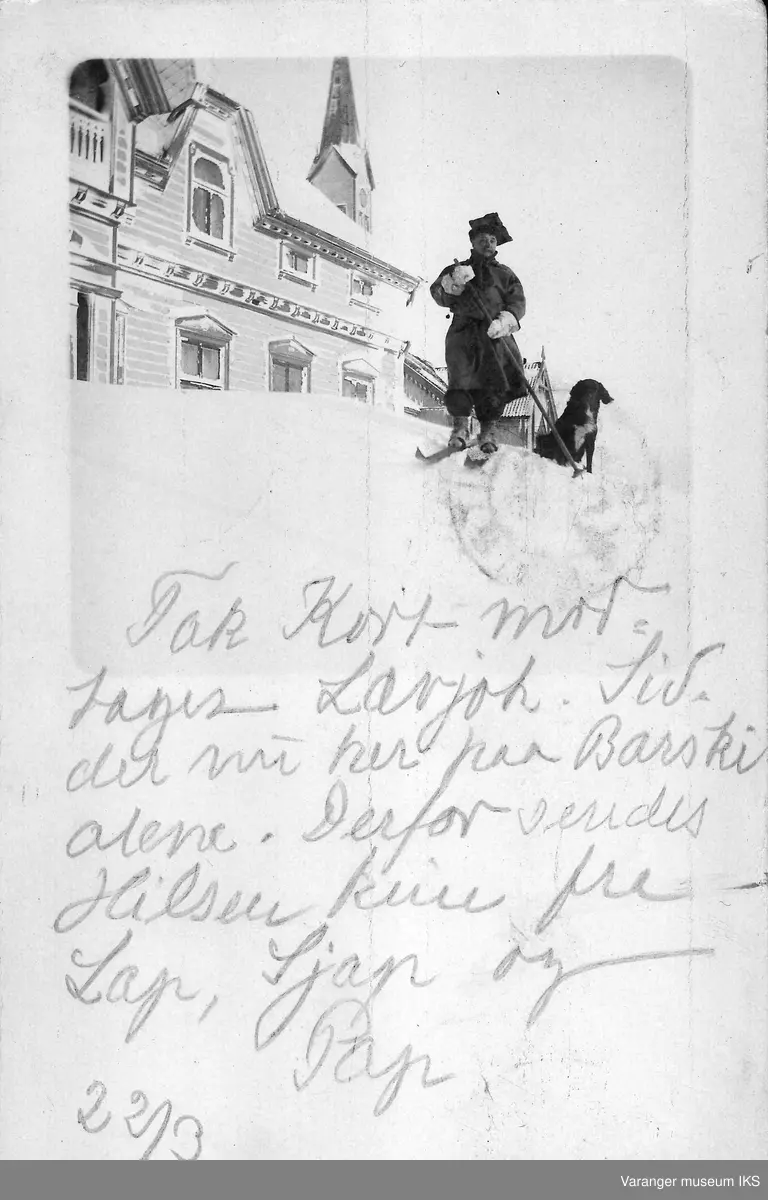 Tak Kort mod-
tages. Lævjoh. Sid-
der nu her paa Barski
alene. Derfor sendes
Hilsen kun fra
Lap, Sjap og
Pap
22/3
Varanger museum IKS